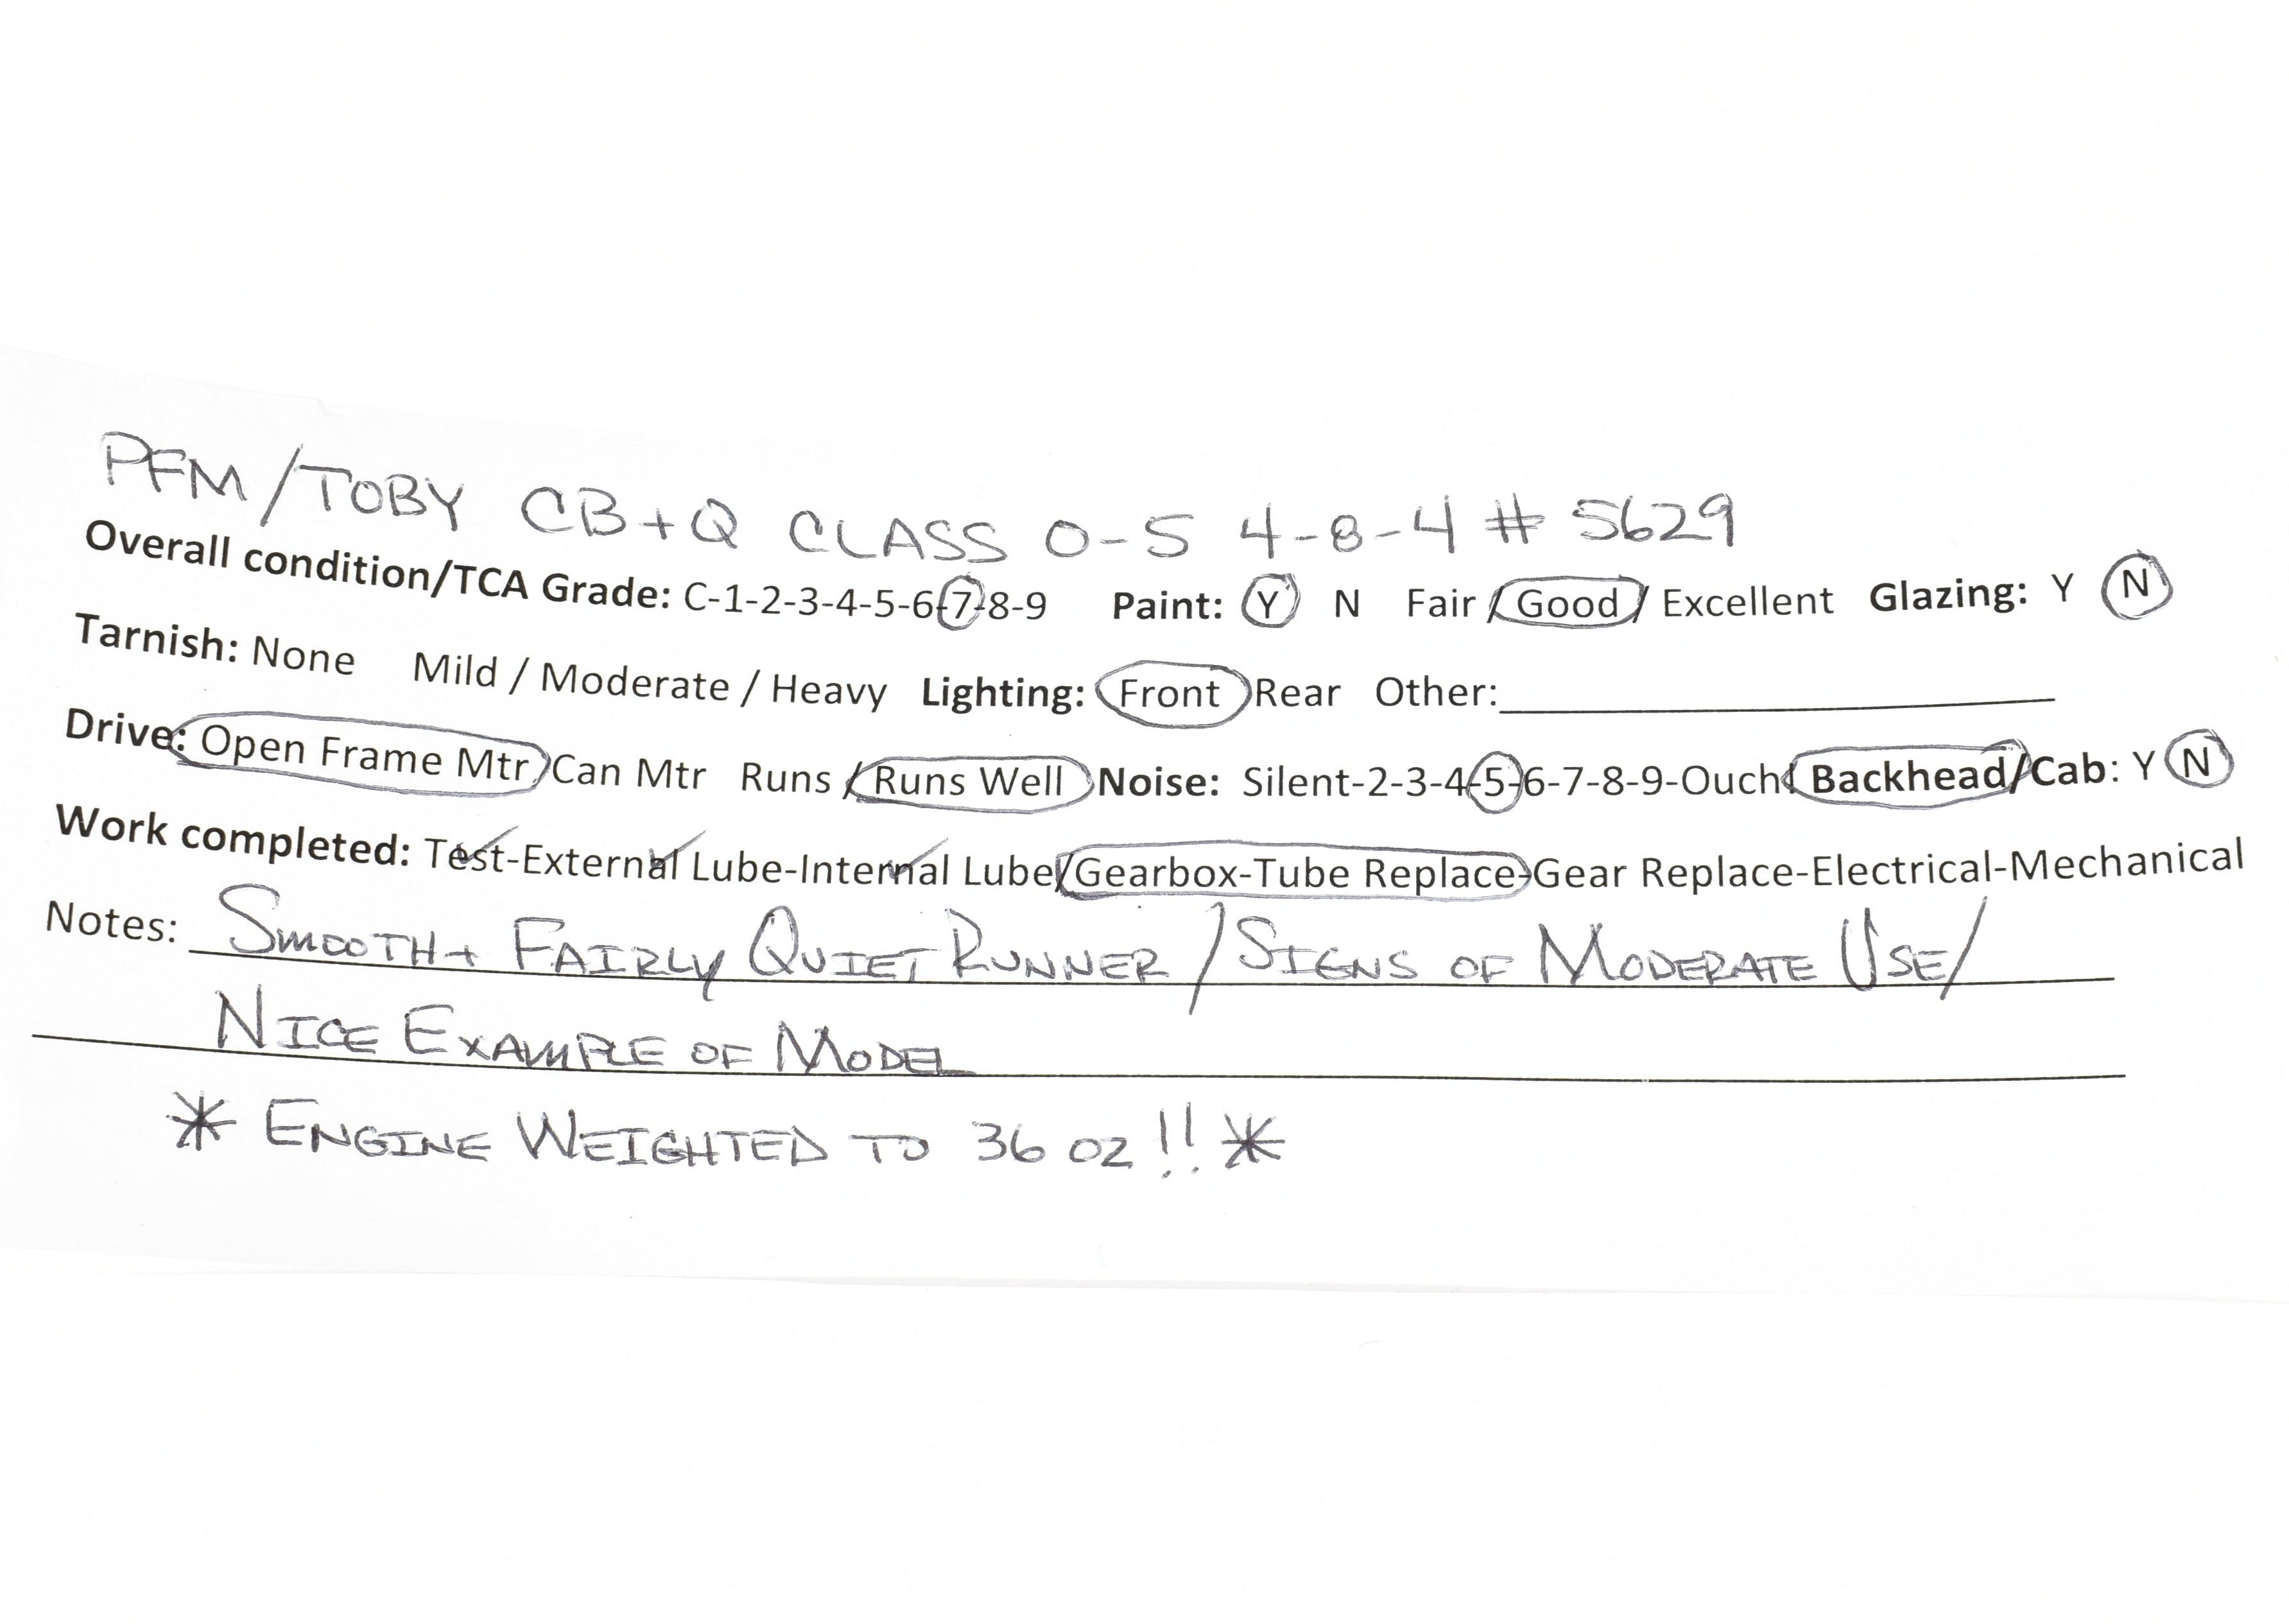 PFM/TOBY CB+Q CLASS O-5 4-8-4 # 5629
Overall condition/TCA Grade: C-1-2-3-4-5-6-7-8-9 Paint: Y N Fair / Good / Excellent Glazing: Y N
Tarnish: None Mild / Moderate / Heavy Lighting: Front Rear Other:
Drive: Open Frame Mtr Can Mtr Runs / Runs Well Noise: Silent-2-3-4-5-6-7-8-9-Ouch! Backhead/Cab: Y N
Work completed: Test-External Lube-Internal Lube/Gearbox-Tube Replace-Gear Replace-Electrical-Mechanical
Notes: SMOOTH + FAIRLY QUIET RUNNER / SIGNS OF MODERATE USE/
NICE EXAMPLE OF MODEL
* ENGINE WEIGHTED TO 36 OZ!! *